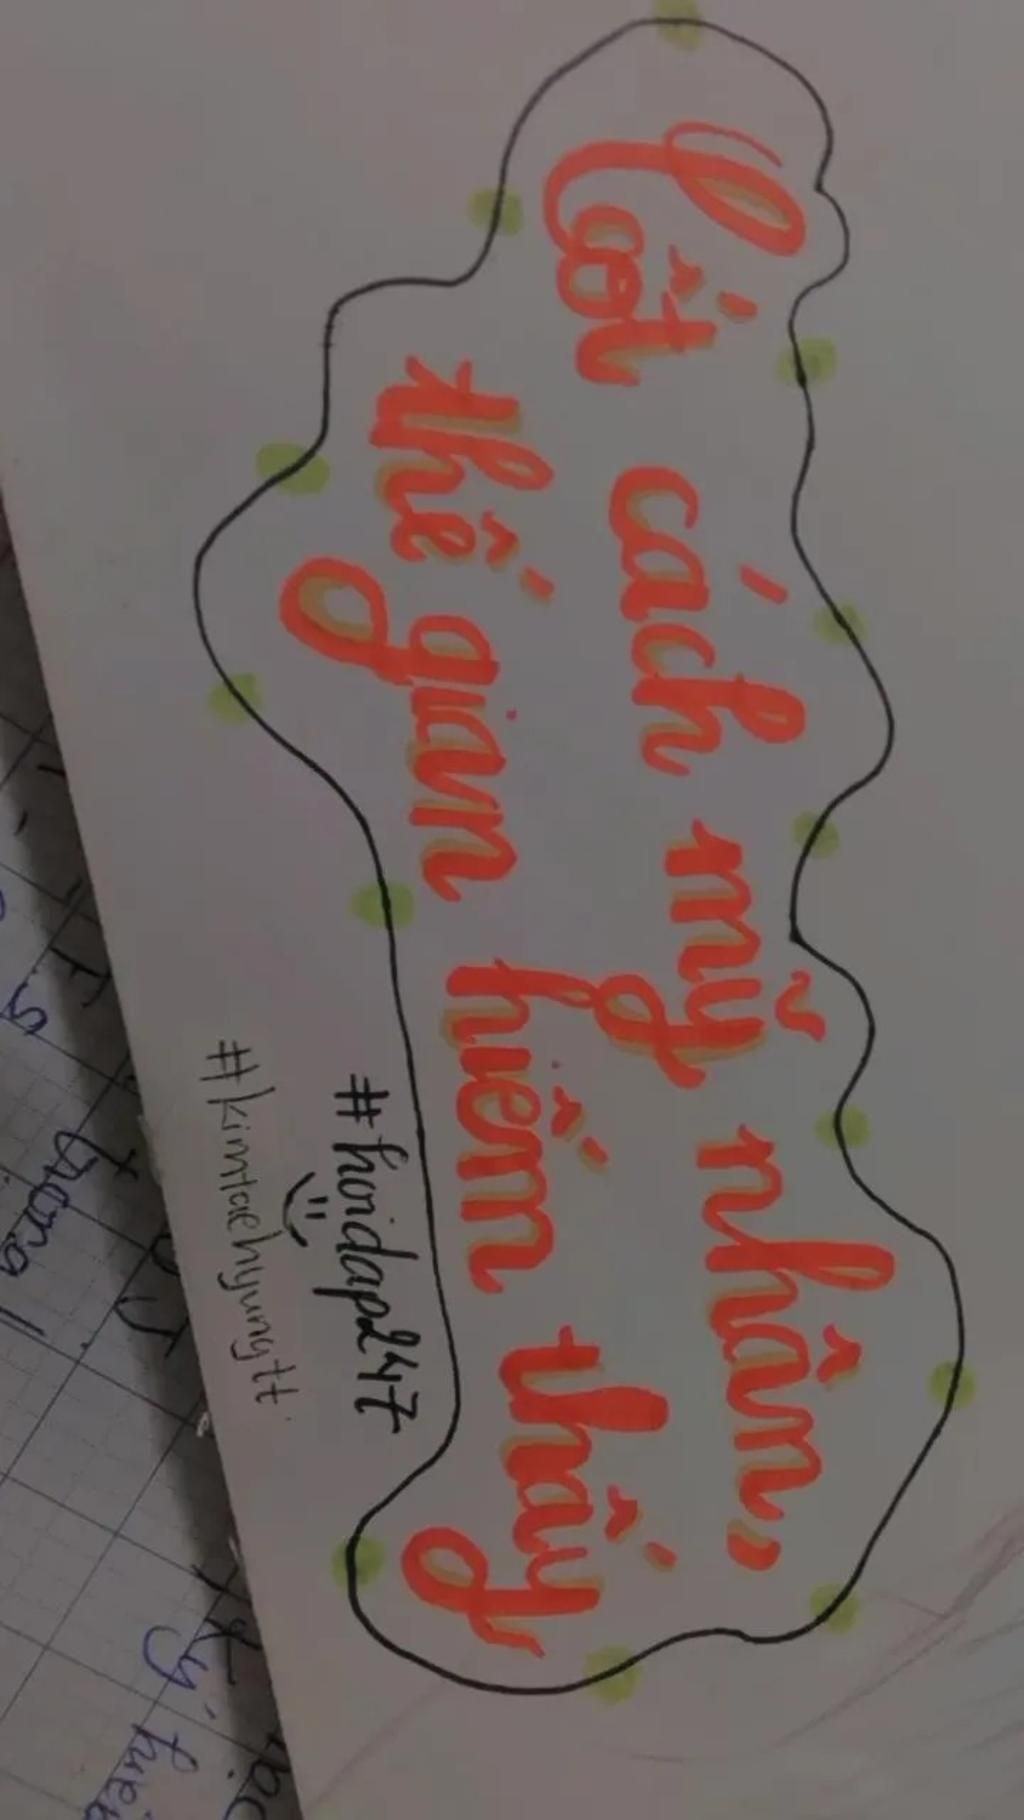 Cốt cách mỹ nhân,
thế gian hiếm thấy
#hoidap247
#kimtaehyungtt
ký hiệ